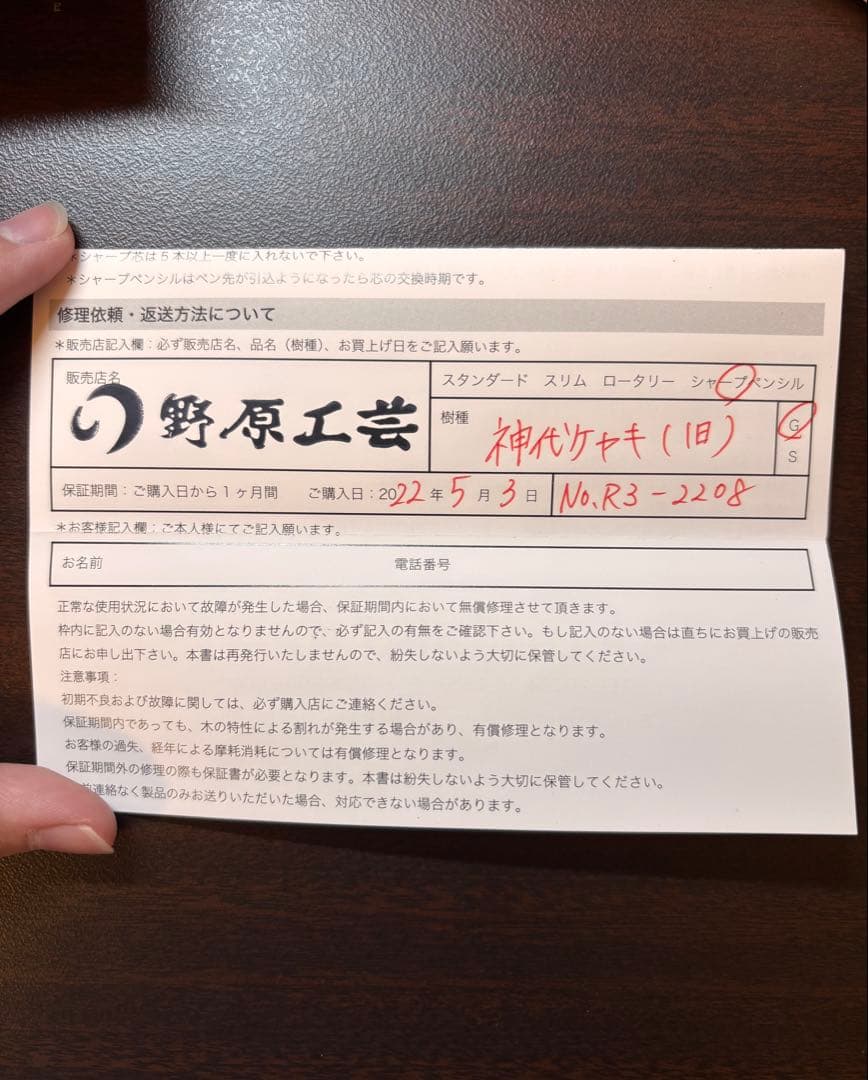 ＊シャープ芯は５本以上一度に入れないで下さい。
＊シャープペンシルはペン先が引込ようになったら芯の交換時期です。
修理依頼・返送方法について
＊販売店記入欄：必ず販売店名、品名（樹種）、お買上げ日をご記入願います。
販売店名
野原工芸
スタンダード　スリム　ロータリー　シャープペンシル
樹種
神代ケヤキ(旧)
G
S
保証期間：ご購入日から１ヶ月間　ご購入日：2022年5月3日
No.R3-2208
＊お客様記入欄：ご本人様にてご記入願います。
お名前　電話番号
正常な使用状況において故障が発生した場合、保証期間内において無償修理させて頂きます。
枠内に記入のない場合有効となりませんので、必ず記入の有無をご確認下さい。もし記入のない場合は直ちにお買上げの販売
店にお申し出下さい。本書は再発行いたしませんので、紛失しないよう大切に保管してください。
注意事項：
初期不良および故障に関しては、必ず購入店にご連絡ください。
保証期間内であっても、木の特性による割れが発生する場合があり、有償修理となります。
お客様の過失、経年による摩耗消耗については有償修理となります。
保証期間外の修理の際も保証書が必要となります。本書は紛失しないよう大切に保管してください。
連絡なく製品のみお送りいただいた場合、対応できない場合があります。